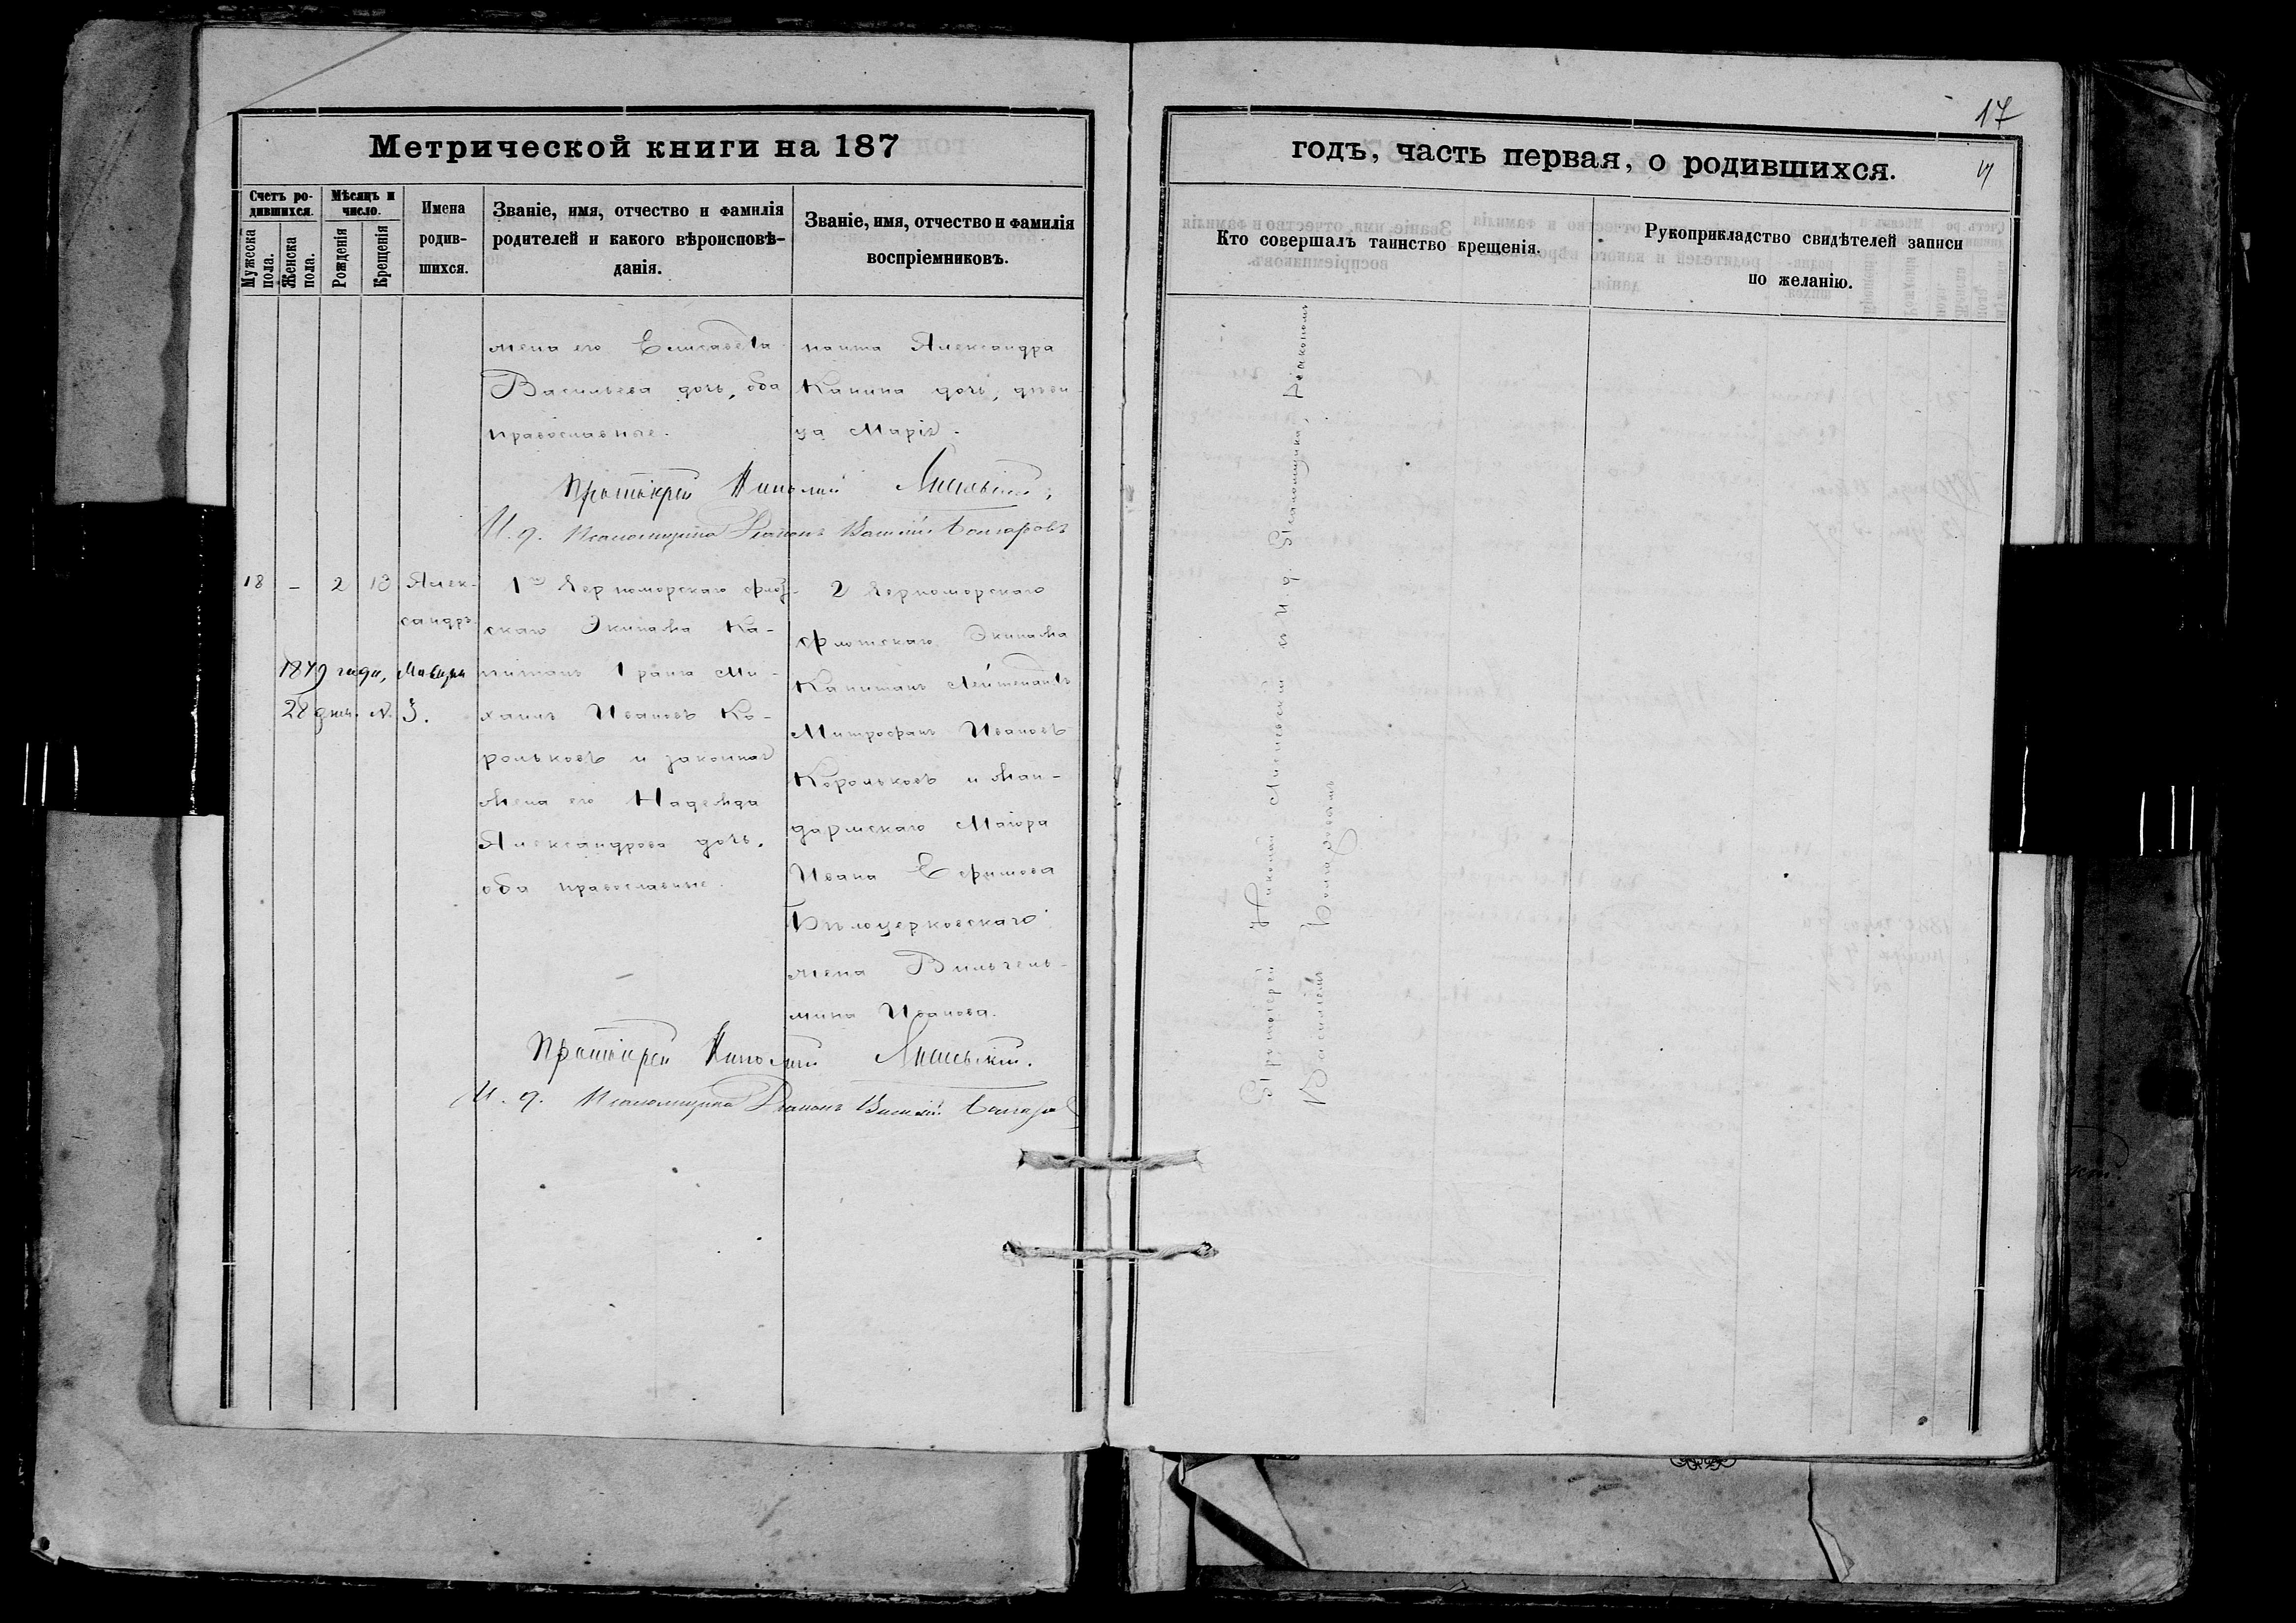 Метрической книги на 187
Счетъ ро-
дившихся.
Мужеска
пола.
Женска
пола.
Мѣсяцъ и
число.
Рожденія
Крещенія
Имена
родив-
шихся.
Званіе, имя, отчество и фамилія
родителей и какого вѣроисповѣ-
данія.
Званіе, имя, отчество и фамилія
воспріемниковъ.
жена его Елисавета
Васильева дочь, оба
православные.
Александра
Канина дочь, двви-
ца Марія.
Протоіерей Николай
И. д. Псаломщика Діаконъ Василій Болгаровъ
18 – 2 13
Алек-
сандръ
1879 года,
28 дня. № 3.
1го Черноморскаго флот-
скаго Экипажа Ка-
питанъ 1 ранга Ми-
хаилъ Ивановъ Ко-
рольковъ и законная
жена его Надежда
Александрова дочь.
оба православные.
2 Черноморскаго
флотскаго Экипажа
Капитанъ Лейтенантъ
Митрофанъ Ивановъ
Корольковъ и жан-
дармскаго Маіора
Ивана Ефимова
Бѣлоцерковскаго
жена Вильгель-
мина Иванова.
Протоіерей Николай
И. д. Псаломщика Діаконъ Василій Болгаровъ
17
годъ, часть первая, о родившихся.
Кто совершалъ таинство крещенія.
Рукоприкладство свидѣтелей записи
по желанію.
Протоіерей Николай с И. д. Псаломщика, Діакономъ
Василіемъ Болгаровымъ